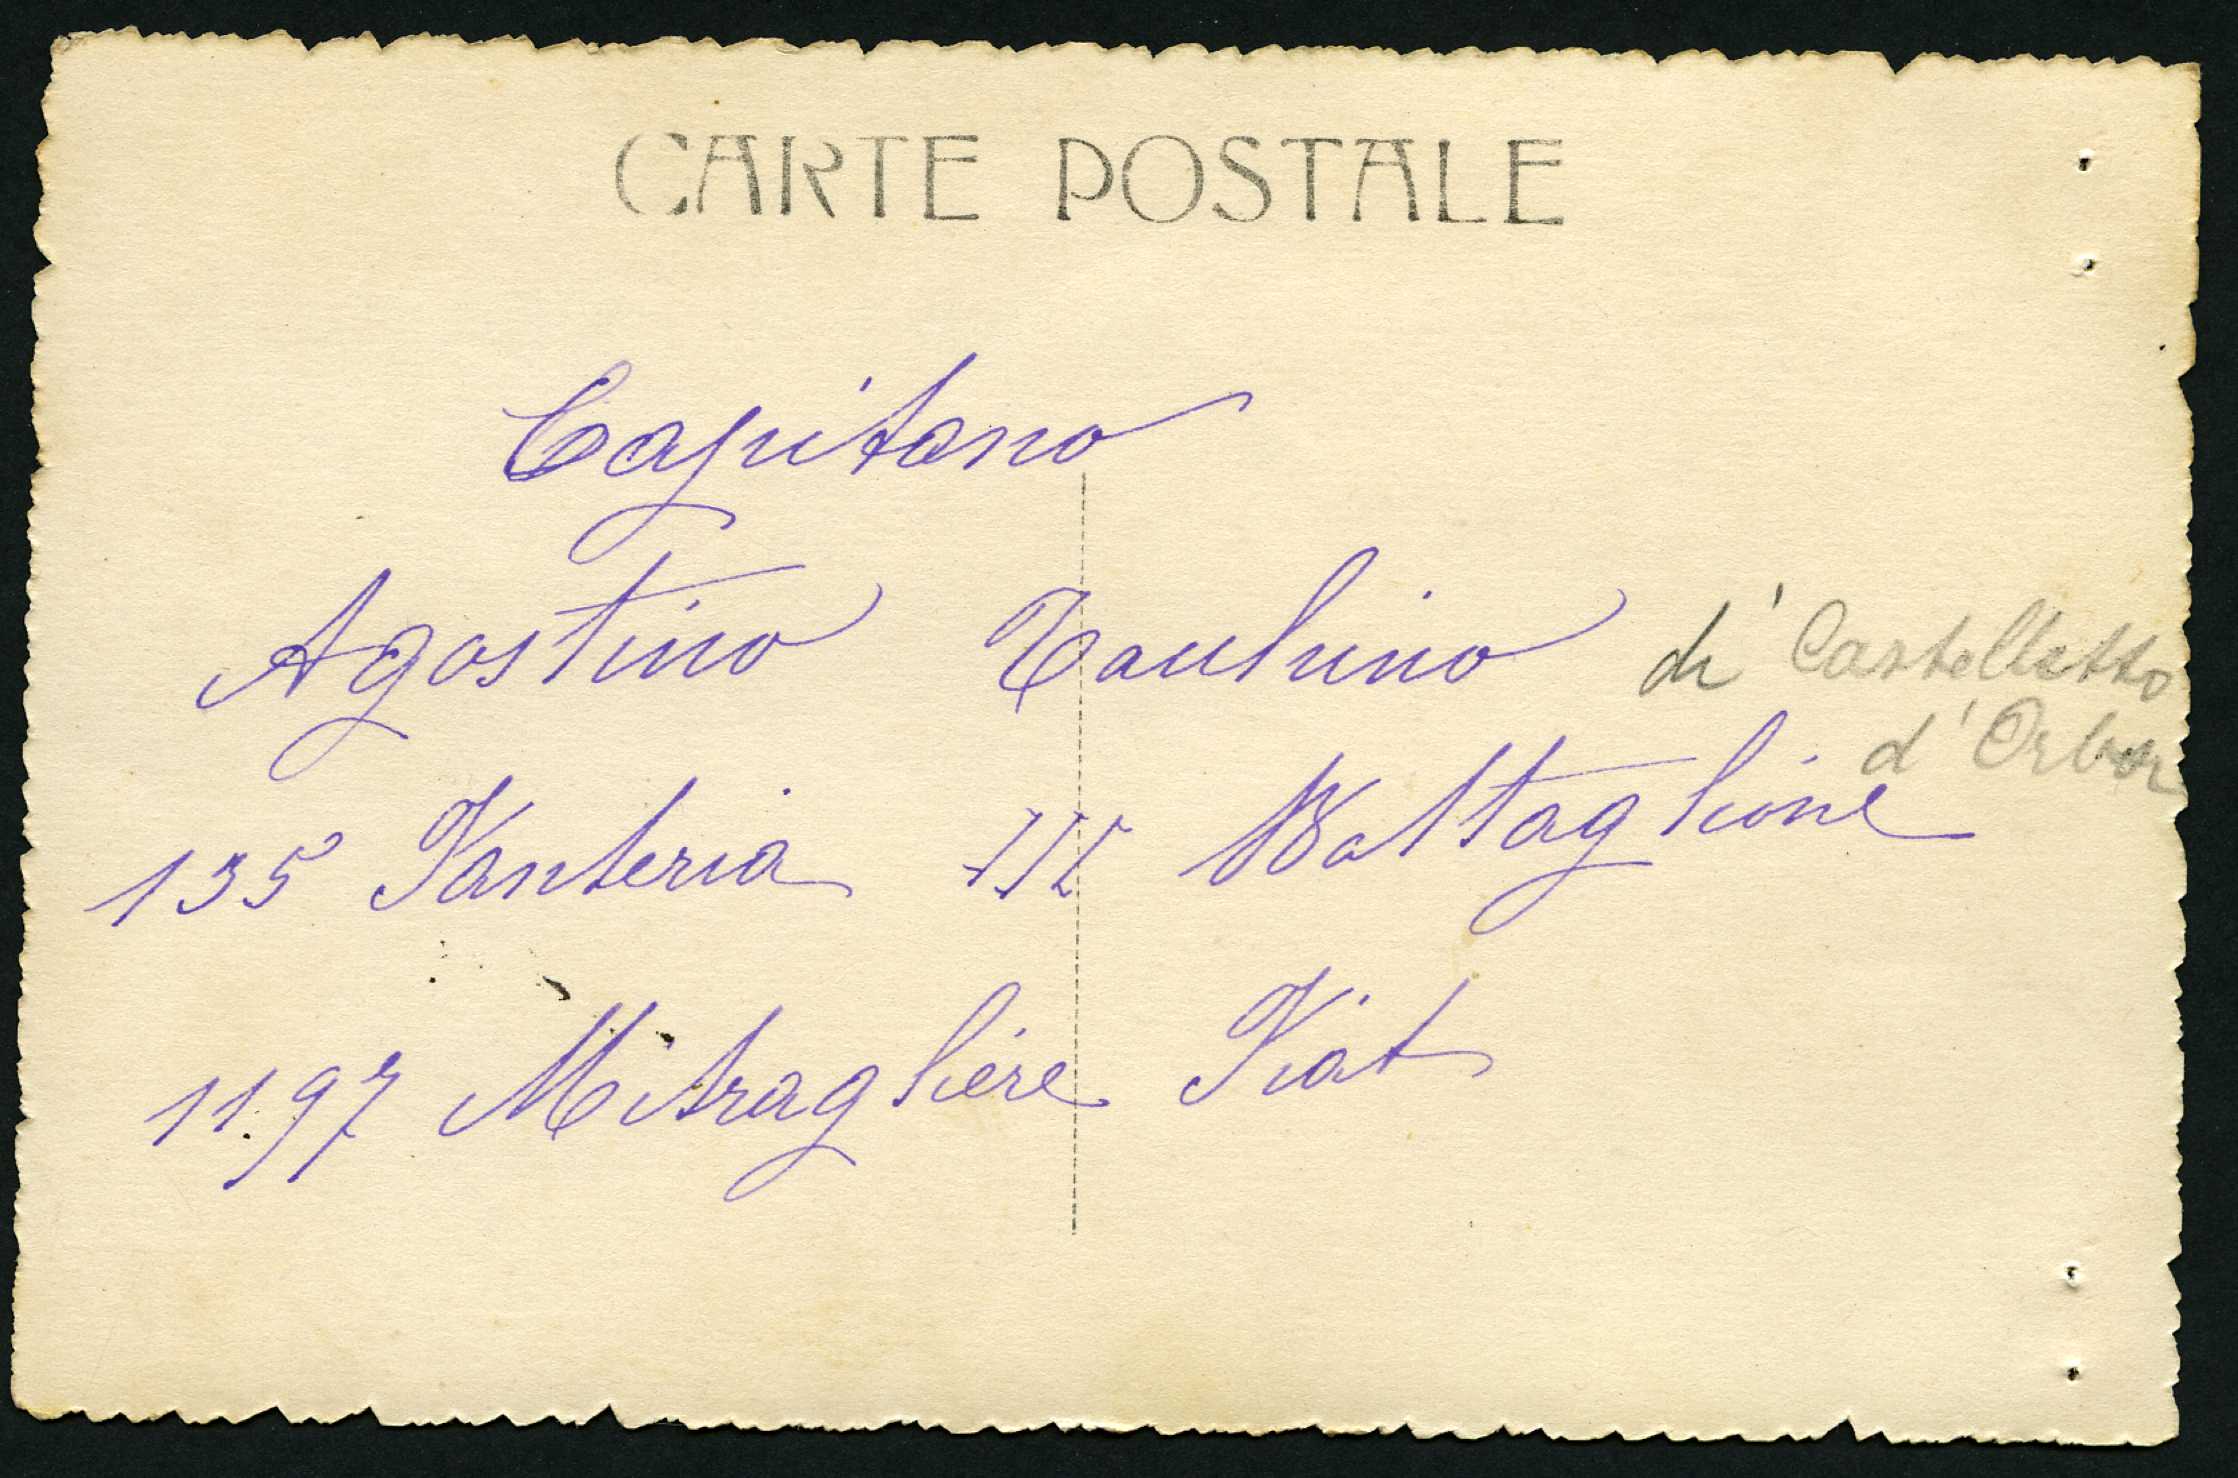 CARTE POSTALE
Capitano
Agostino Tacchino di Castelletto
d'Orba
135 Fanteria III Battaglione
1197 Mitragliere Fiat